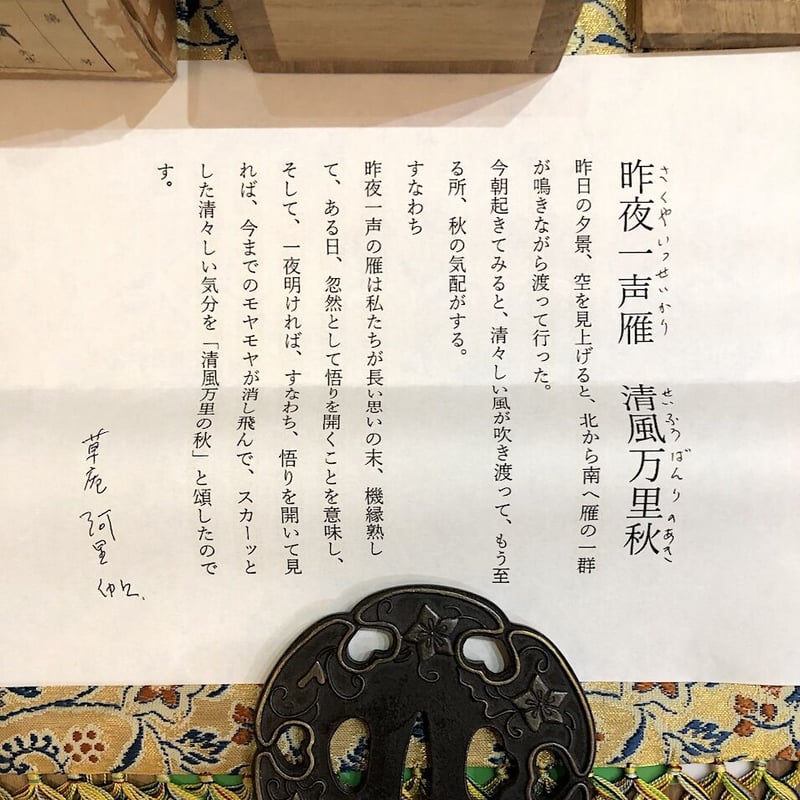 昨夜一声雁 清風万里秋
さくやいっせいかり せいふうばんりのあき
昨日の夕景、空を見上げると、北から南へ雁の一群
が鳴きながら渡って行った。
今朝起きてみると、清々しい風が吹き渡って、もう至
る所、秋の気配がする。
すなわち
昨夜一声の雁は私たちが長い思いの末、機縁熟し
て、ある日、忽然として悟りを開くことを意味し、
そして、一夜明ければ、すなわち、悟りを開いて見
れば、今までのモヤモヤが消し飛んで、スカーッと
した清々しい気分を「清風万里の秋」と頌したので
す。
草庵